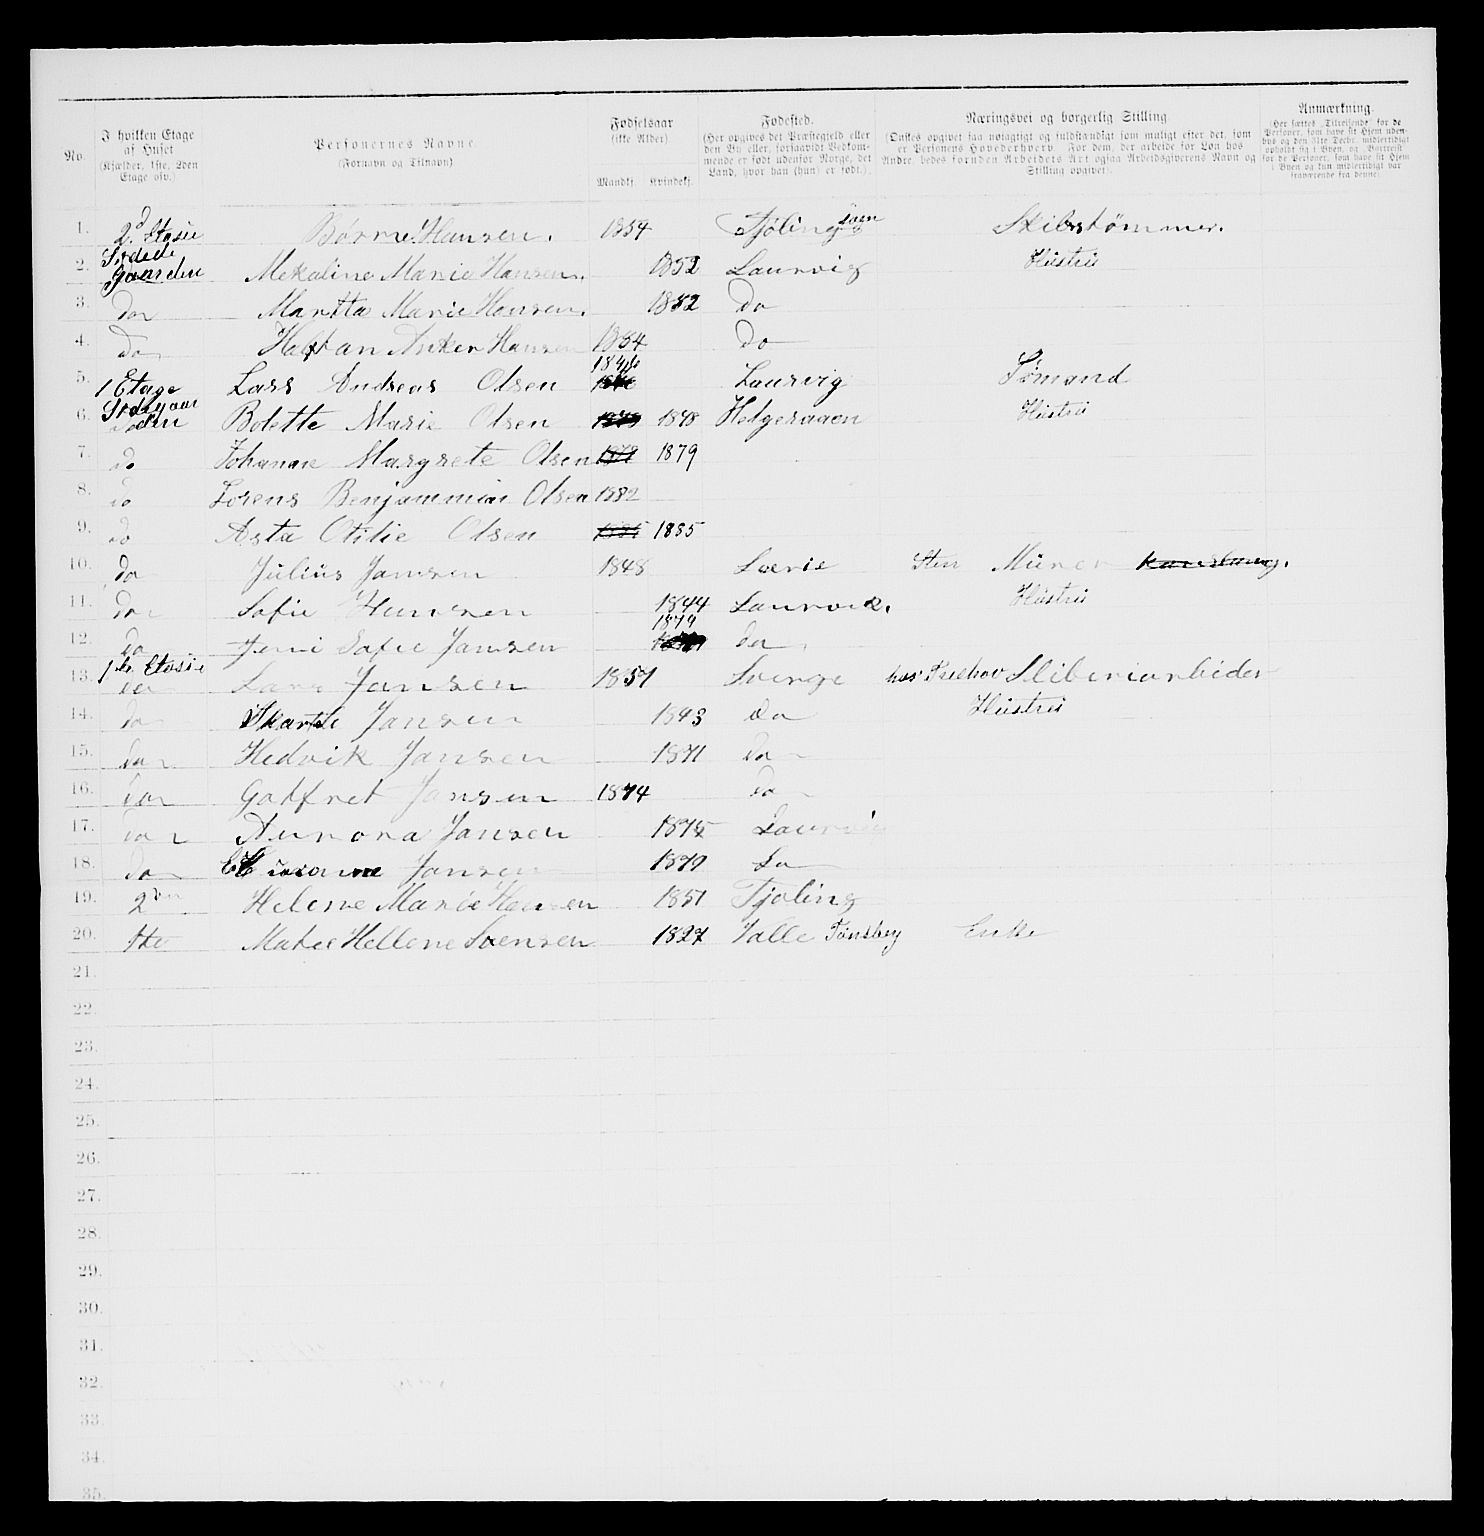 No.
I hvilken Etage af Huset (Kjælder, 1ste, 2den Etage osv.)
Personernes Navne. (Fornavn og Tilnavn)
Fødselsaar (ikke Alder)
Mandkj. Kvindekj.
Fødested. (Her opgives det Præstegjeld eller den By eller, forsaavidt Vedkommende er født udenfor Norge, det Land, hvor han (hun) er født.)
Næringsvei og borgerlig Stilling. (Ønskes opgivet saa nøiagtigt og fuldstændigt som muligt efter det, som er Personens Hovederhverv. For dem, der arbeide for Løn hos Andre, bedes foruden Arbeidets Art ogsaa Arbeidsgiverens Navn og Stilling opgivet.)
Anmærkning. (Her sættes „Tilreisende“ for de Personer, som have sit Hjem udenbys og den 31te Decbr. midlertidigt opholdt sig i Byen, og „Bortreist“ for de Personer, som have sit Hjem i Byen og kun midlertidigt var fraværende fra denne)
1. 2d Etasie Hansen. 1854 Tjøling Skibstømmer.
2. Gaarden Mekaline Marie Hansen. 1852 Laurvig Hustru
3. do Martta Marie Hansen. 1882 Do
4. Do Halfan Anker Hansen 1884 Do
5. 1 Etage Lars Andreas Olsen 1846 Laurvig Sømand
6. Bolette Marie Olsen 1848 Helgeraaen Hustru
7. do Johanne Margrete Olsen 1879
8. do Lorens Benjammin Olsen 1882
9. do Asta Otilie Olsen 1885
10. do Julius Jansen 1848 Sverie Sten Murer
11. do Sofie Hansen 1844 Laurvik. Hustru
12. do Jeni Sofie Jansen 1879 do
13. 1te Etasie Lars Jansen 1851 Sverge hos Treschov Sliberiarbeider
14. do Jansen 1843 do Hustru
15. do Hedvik Jansen 1871 do
16. do Gotfret Jansen 1874 do
17. do Aurora Jansen 1875 Laurvig
18. do Jansen 1879 Do
19. 2den Helene Marie Hansen 1851 Tjøling
20. Maree Hellene Svensen 1827 Valle Tønsberg Enke
21.
22.
23.
24.
25.
26.
27.
28.
29.
30.
31.
32.
33.
34.
35.